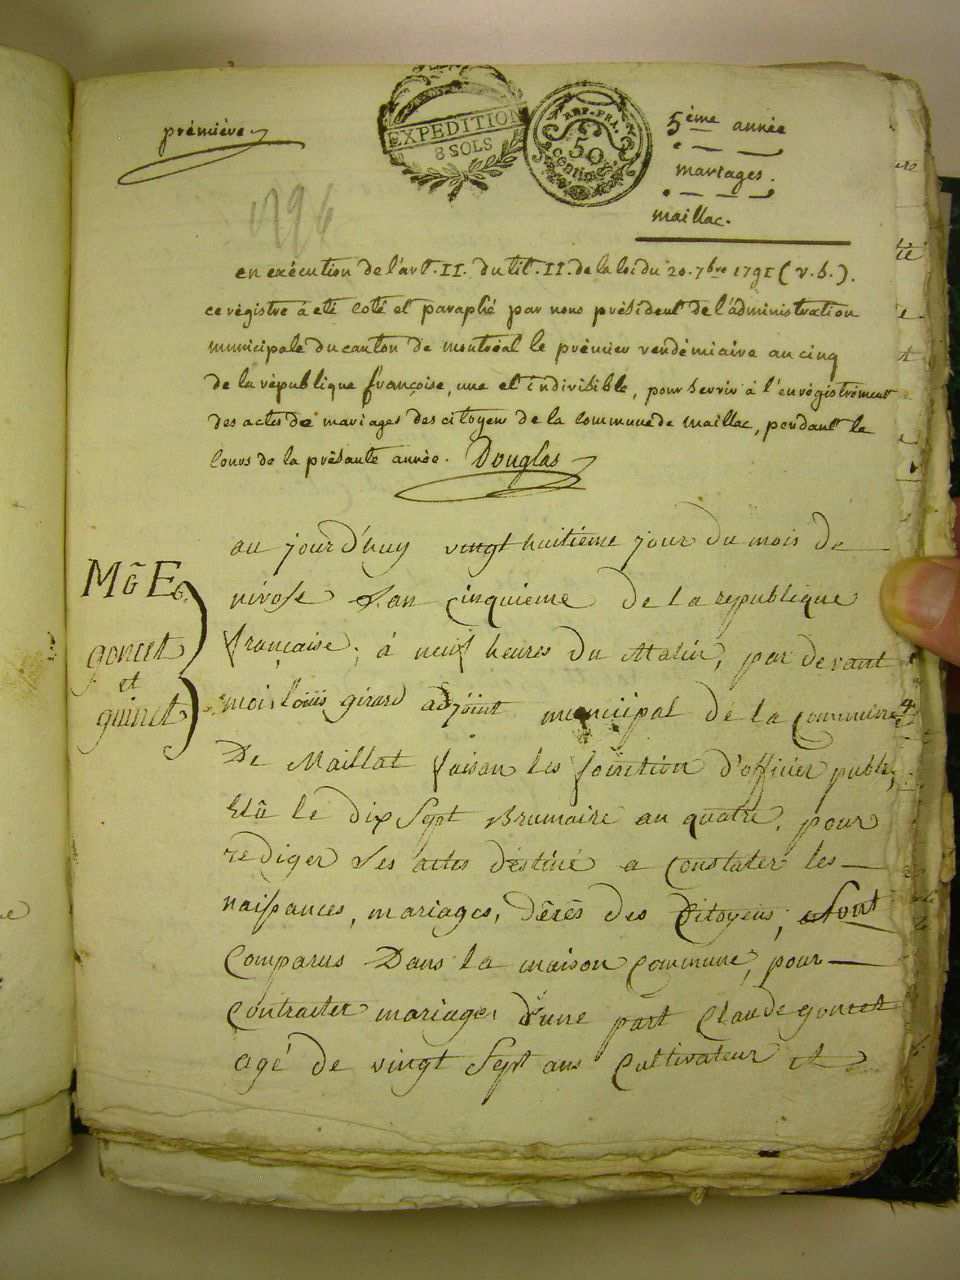 prémière
EXPEDITION
8 SOLS
REP. FRA.
50
centimes.
5ème année
mariages.
maillac.
1796
en exécution de l'art. II. du tit. II. de la loi du 20. 7bre 1791 (v. s.).
ce régistre à eté coté et paraphé par nous président de l'administration
municipale du canton de montréal le prémier vendémiaire an cinq
de la république françoise, une et indivisible, pour servir à l'enrégistrement
des actes de mariages des citoyens de la commune de maillac, pendant le
cours de la présante année. Douglas
au jour d'huy vingt huitieme jour du mois de
nivose l'an cinquieme de la republique
française, à neuf heures du Matin, par devant
moi, louis girard adjoint municipal de la commune
De Maillat faisan les foinction d'officier public,
Elû le dix Sept Brumaire an quatre, pour
rediger Les actes déstiné a constater les
naissances, mariages, dêcês des Citoyens, Sont
Comparus Dans la maison Commune, pour
Contracter mariage, d'une part Claude goncet
agé de vingt Sept ans Cultivateur et
Mg̃E
goncet
et
guinet